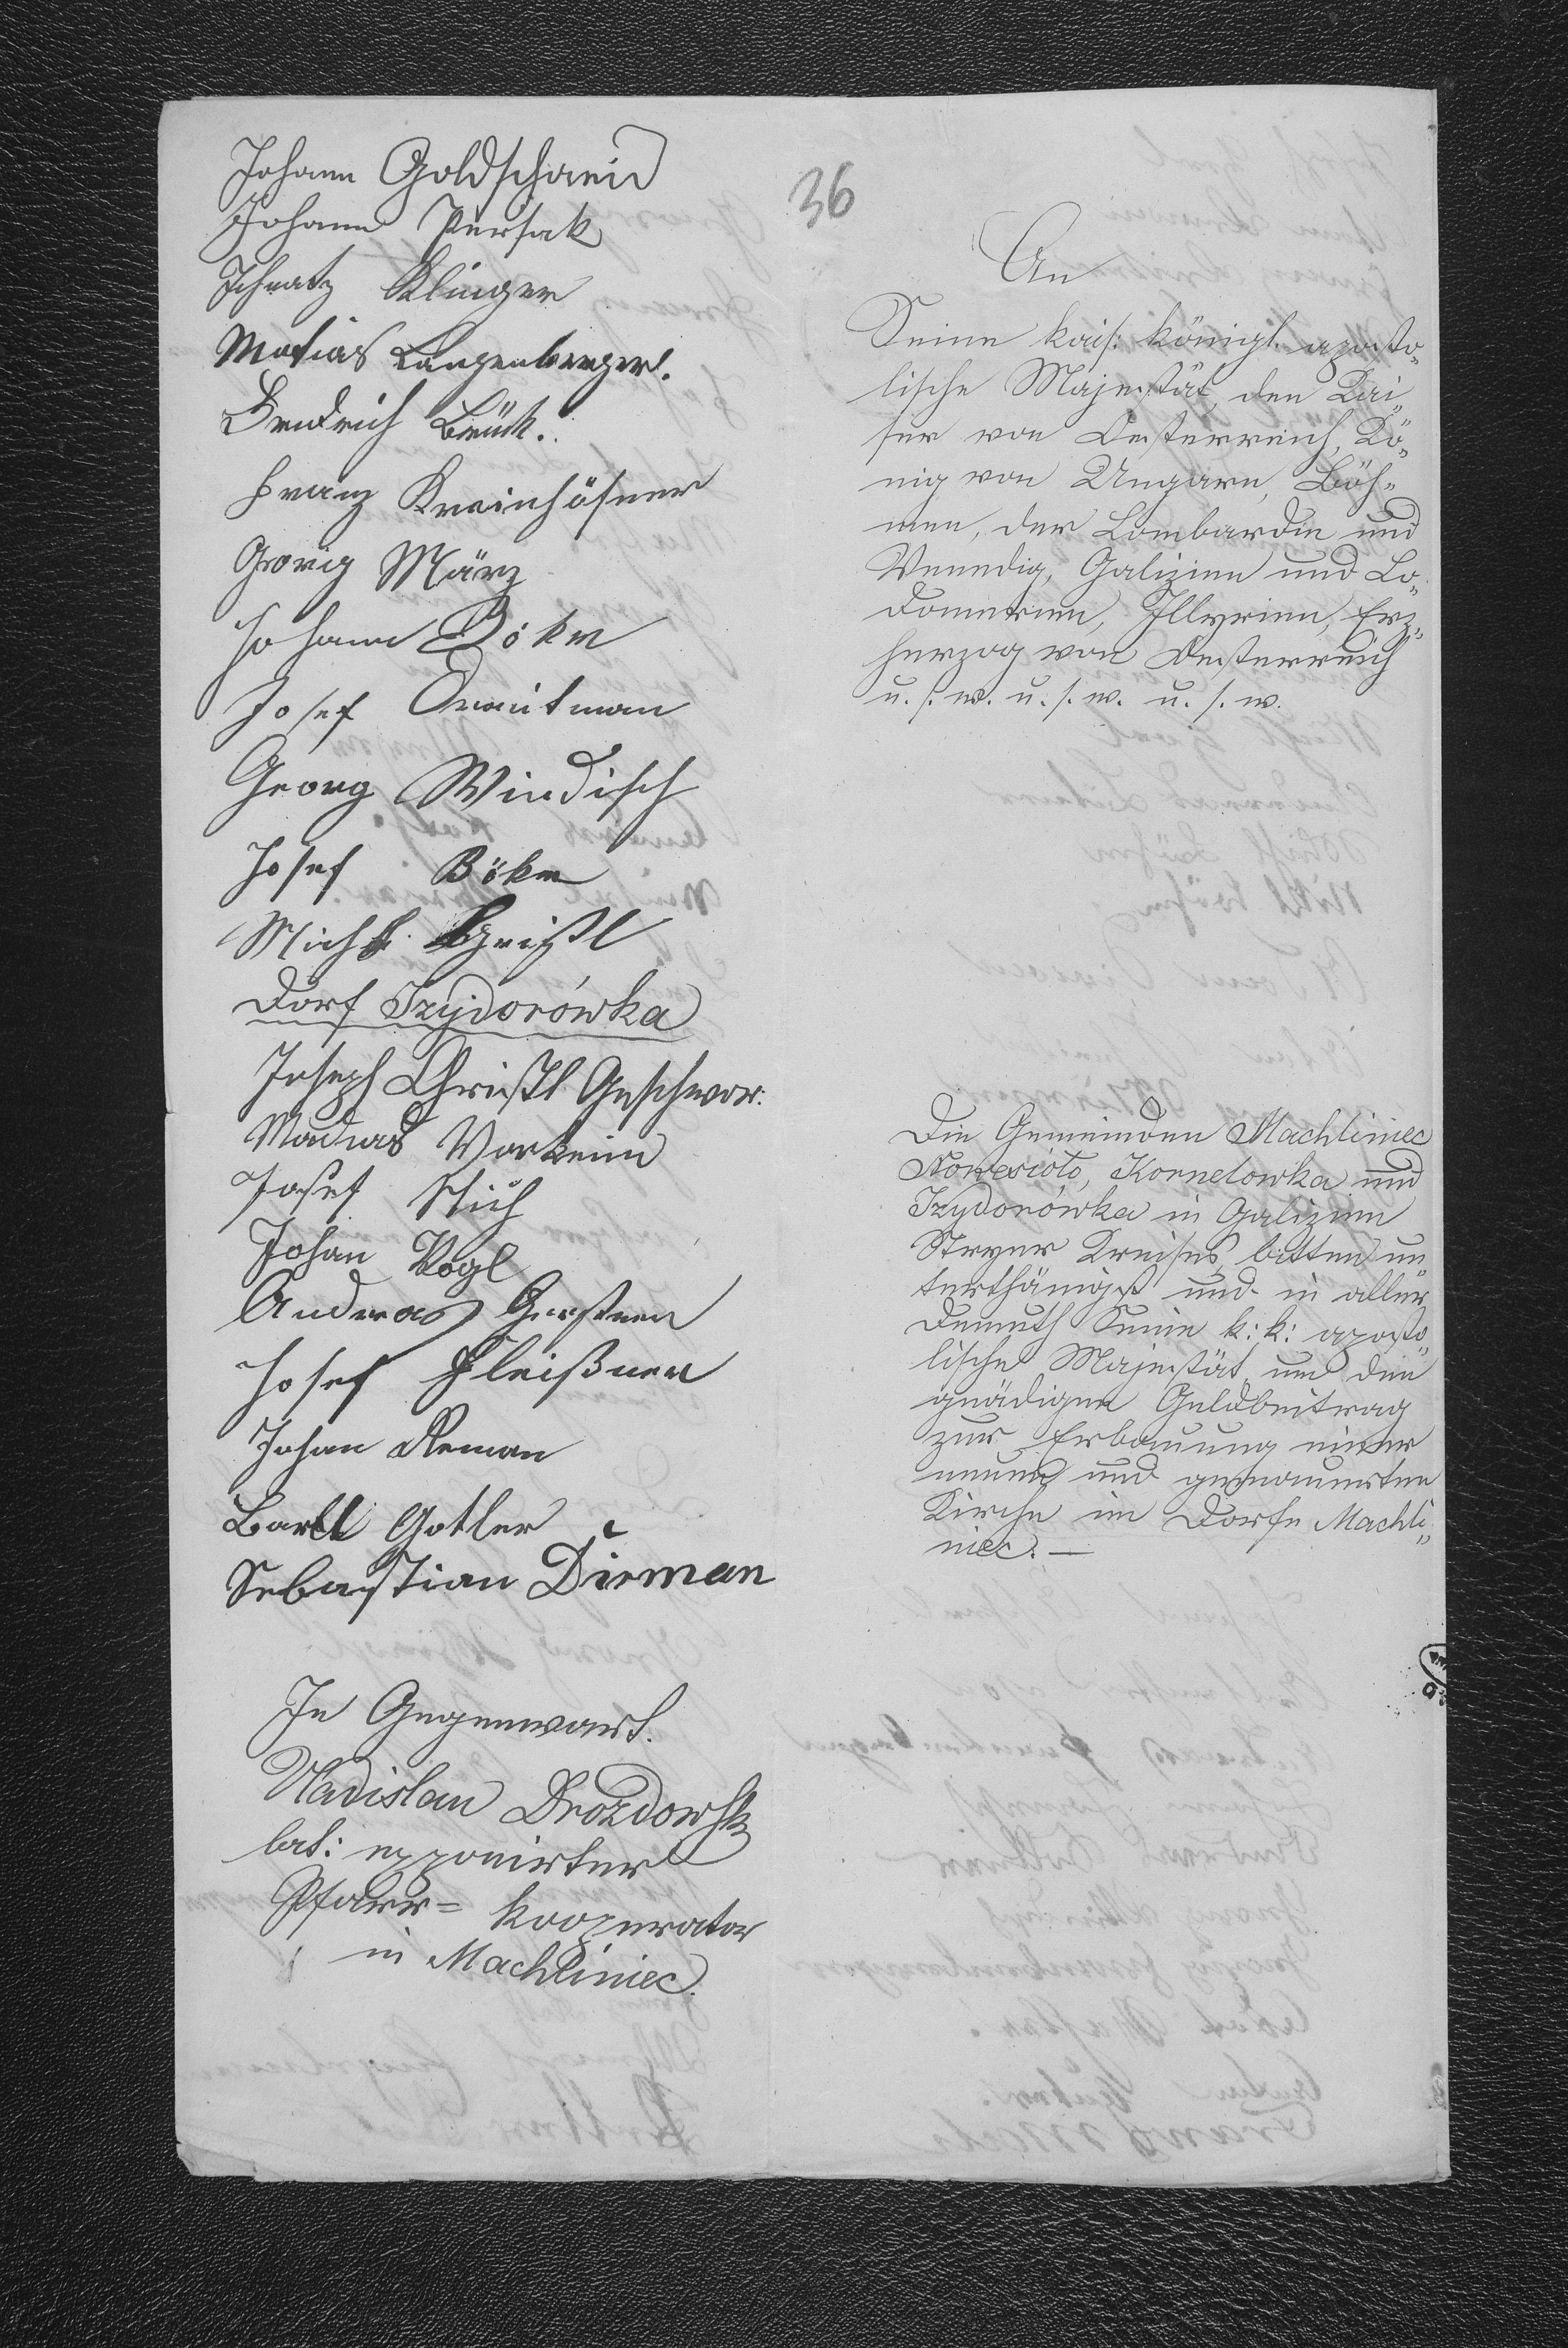 Johann Goldschmid
Johann Persak
Ichnatz Klinger
Matias Langenberger.
Brück.
Franz Krainhöfner
Georig März
Johann Bökm
Josef
Georg Windisch
Josef Bökm
Mich Christl
Dorf Izydorówka
Joseph Christl Geschwor:
Madias Workeim
Josef Stich
Johan Vogl
Andreas Gerstner
Josef Fleißner
Johan Reman
Bartl Gotler
Sebastian Dirman
In Gegenwart.
Wladislau Drozdowski
lat: exponirter
Pfarr= Kooperator
in Machliniec.
36
An
Seine kais: königl. aposto„
lische Majestät, den Kai„
ser von Oesterreich, Kö„
nig von Ungarn, Böh„
men, der Lombardie und
Venedig, Galizien und Lo„
domerien, Illyrien, Erz„
herzog von Oesterreich
u. s. w. u. s. w. u. s. w.
Die Gemeinden Machliniec
Nowesioło, Kornelowka und
Izydorówka in Galizien
Stryer Kreises, bitten un„
terthänigst und in aller
Demuth Seine k: k: aposto„
lische Majestät um den
gnädigen Geldbeitrag
zur Erbauung einer
neuen und gemauerten
Kirche im Dorfe Machli„
niec. —